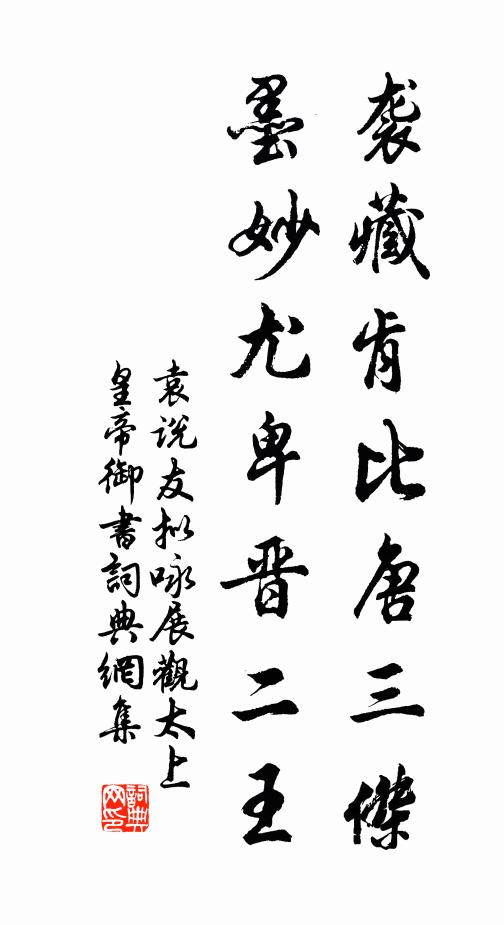 袭藏肯比唐三傑
墨妙尤卑晋二王
袁説友拟咏展觀太上
皇帝御書詞典網集
詞典網印